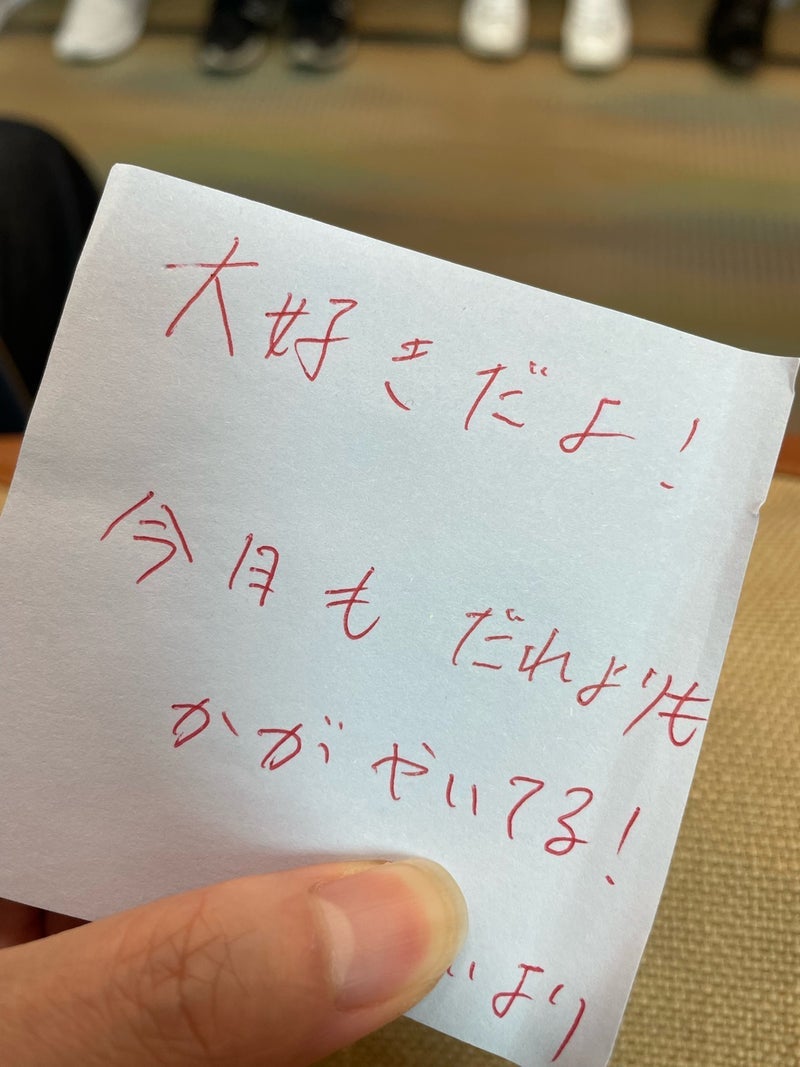 大好きだよ!
今月も だれよりも
かがやいてる!
いより